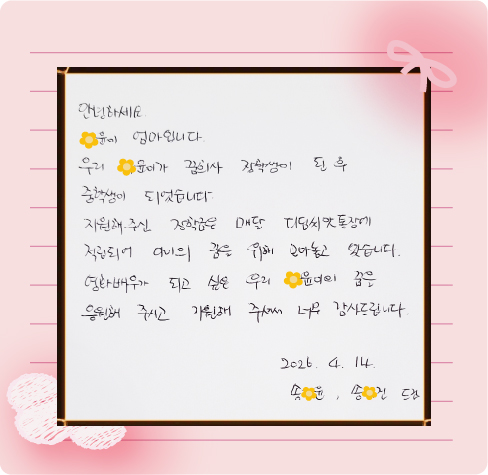 안녕하세요.
윤이 엄마입니다.
우리 윤이가 꿈의사 장학생이 된 후
중학생이 되었습니다.
지원해 주신 장학금은 매달 디딤씨앗통장에
적립되어 아이의 꿈을 위해 모아놓고 있습니다.
영화배우가 되고 싶은 우리 윤이의 꿈을
응원해 주시고 지원해 주셔서 너무 감사드립니다.
2026. 4. 14.
송 윤, 송 진 드림